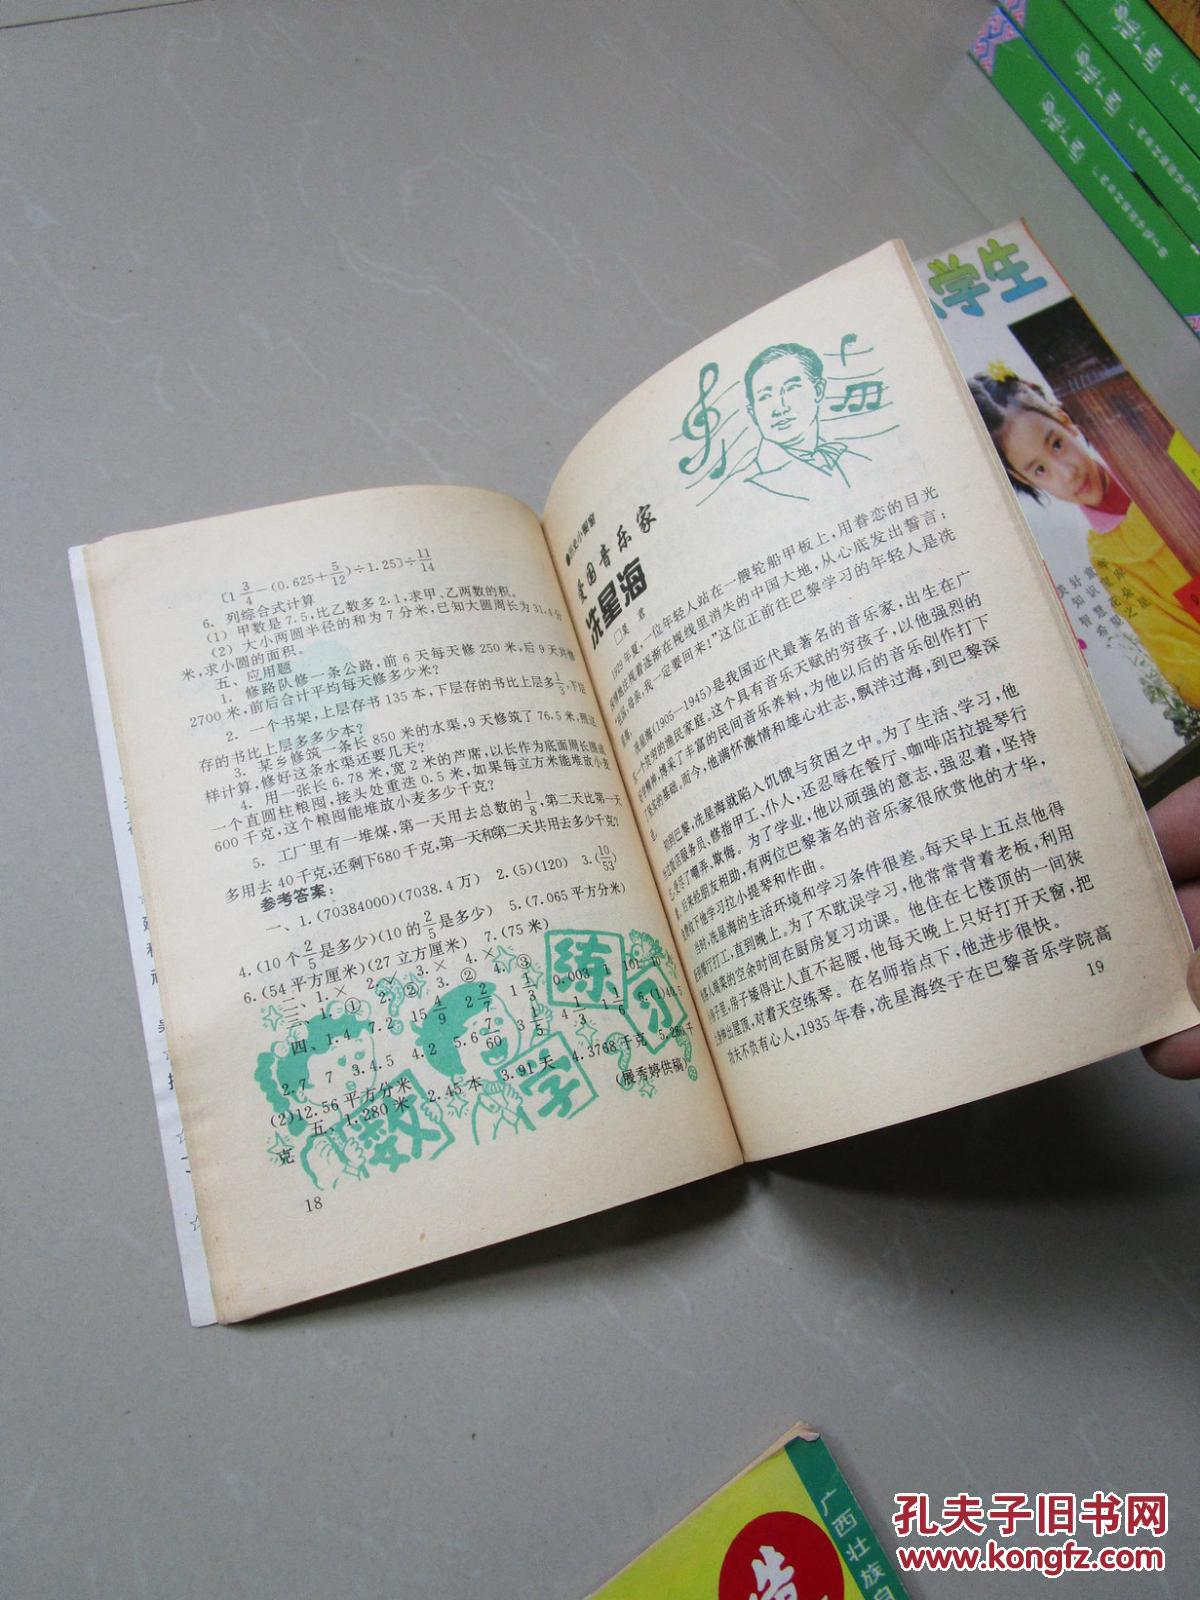 〔1 3/4－(0.625＋5/12)÷1.25〕÷11/14
6. 列综合式计算
(1) 甲数是7.5,比乙数多2.1,求甲、乙两数的积。
(2) 大小两圆半径的和为7分米,已知大圆周长为31.4分
米,求小圆的面积。
五、应用题
1. 修路队修一条公路,前6天每天修250米,后9天共修
2700米,前后合计平均每天修多少米?
2. 一个书架,上层存书135本,下层存的书比上层多1/3,下层
存的书比上层多多少本?
3. 某乡修筑一条长850米的水渠,9天修筑了76.5米,照这
样计算,修好这条水渠还要几天?
4. 用一张长6.78米,宽2米的芦席,以长作为底面周长围成
一个直圆柱粮囤,接头处重迭0.5米,如果每立方米能堆放小麦
600千克,这个粮囤能堆放小麦多少千克?
5. 工厂里有一堆煤,第一天用去总数的1/8,第二天比第一天
多用去40千克,还剩下680千克,第一天和第二天共用去多少千克?
参考答案:
一、1.(70384000)(7038.4万) 2.(5)(120) 3.(10/53)
4.(10个2/5是多少)(10的2/5是多少) 5.(7.065平方分米)
6.(54平方厘米)(27立方厘米) 7.(75米)
二、1.× 2.× 3.× 4.×
三、1.① 2.② 3.② 4.③
(2)12.56平方分米
五、1.280米 2.45本 3.91天 4.3768千克 5.
克
(展秀婷供稿)
练习
数学
18
●历史小橱窗
爱国音乐家
冼星海
1925年夏,一位年轻人站在一艘轮船甲板上,用眷恋的目光
深情地注视着逐渐在视线里消失的中国大地,从心底发出誓言:
“祖国,母亲,我一定要回来!”这位正前往巴黎学习的年轻人是冼
星海。
冼星海(1905—1945)是我国近代最著名的音乐家,出生在广
东一个贫穷的渔民家庭。这个具有音乐天赋的穷孩子,以他强烈的
求学精神,博采了丰富的民间音乐养料,为他以后的音乐创作打下
了坚实的基础。而今,他满怀激情和雄心壮志,飘洋过海,到巴黎深
造。
初到巴黎,冼星海就陷入饥饿与贫困之中。为了生活、学习,他
当过饭店服务员、修指甲工、仆人,还忍辱在餐厅、咖啡店拉提琴行
乞,受尽了嘲弄、欺侮。为了学业,他以顽强的意志,强忍着,坚持
着。后来经朋友相助,有两位巴黎著名的音乐家很欣赏他的才华,
免费收下他学习拉小提琴和作曲。
当时,冼星海的生活环境和学习条件很差。每天早上五点他得
去到餐厅打工,直到晚上。为了不耽误学习,他常常背着老板,利用
客人端菜的空余时间在厨房复习功课。他住在七楼顶的一间狭
小房子里,房子矮得让人直不起腰,他每天晚上只好打开天窗,把
上身伸出屋顶,对着天空练琴。在名师指点下,他进步很快。
功夫不负有心人,1935年春,冼星海终于在巴黎音乐学院高
19
学生
智慧花朵
希望之星
广西壮族自
孔夫子旧书网
www.kongfz.com